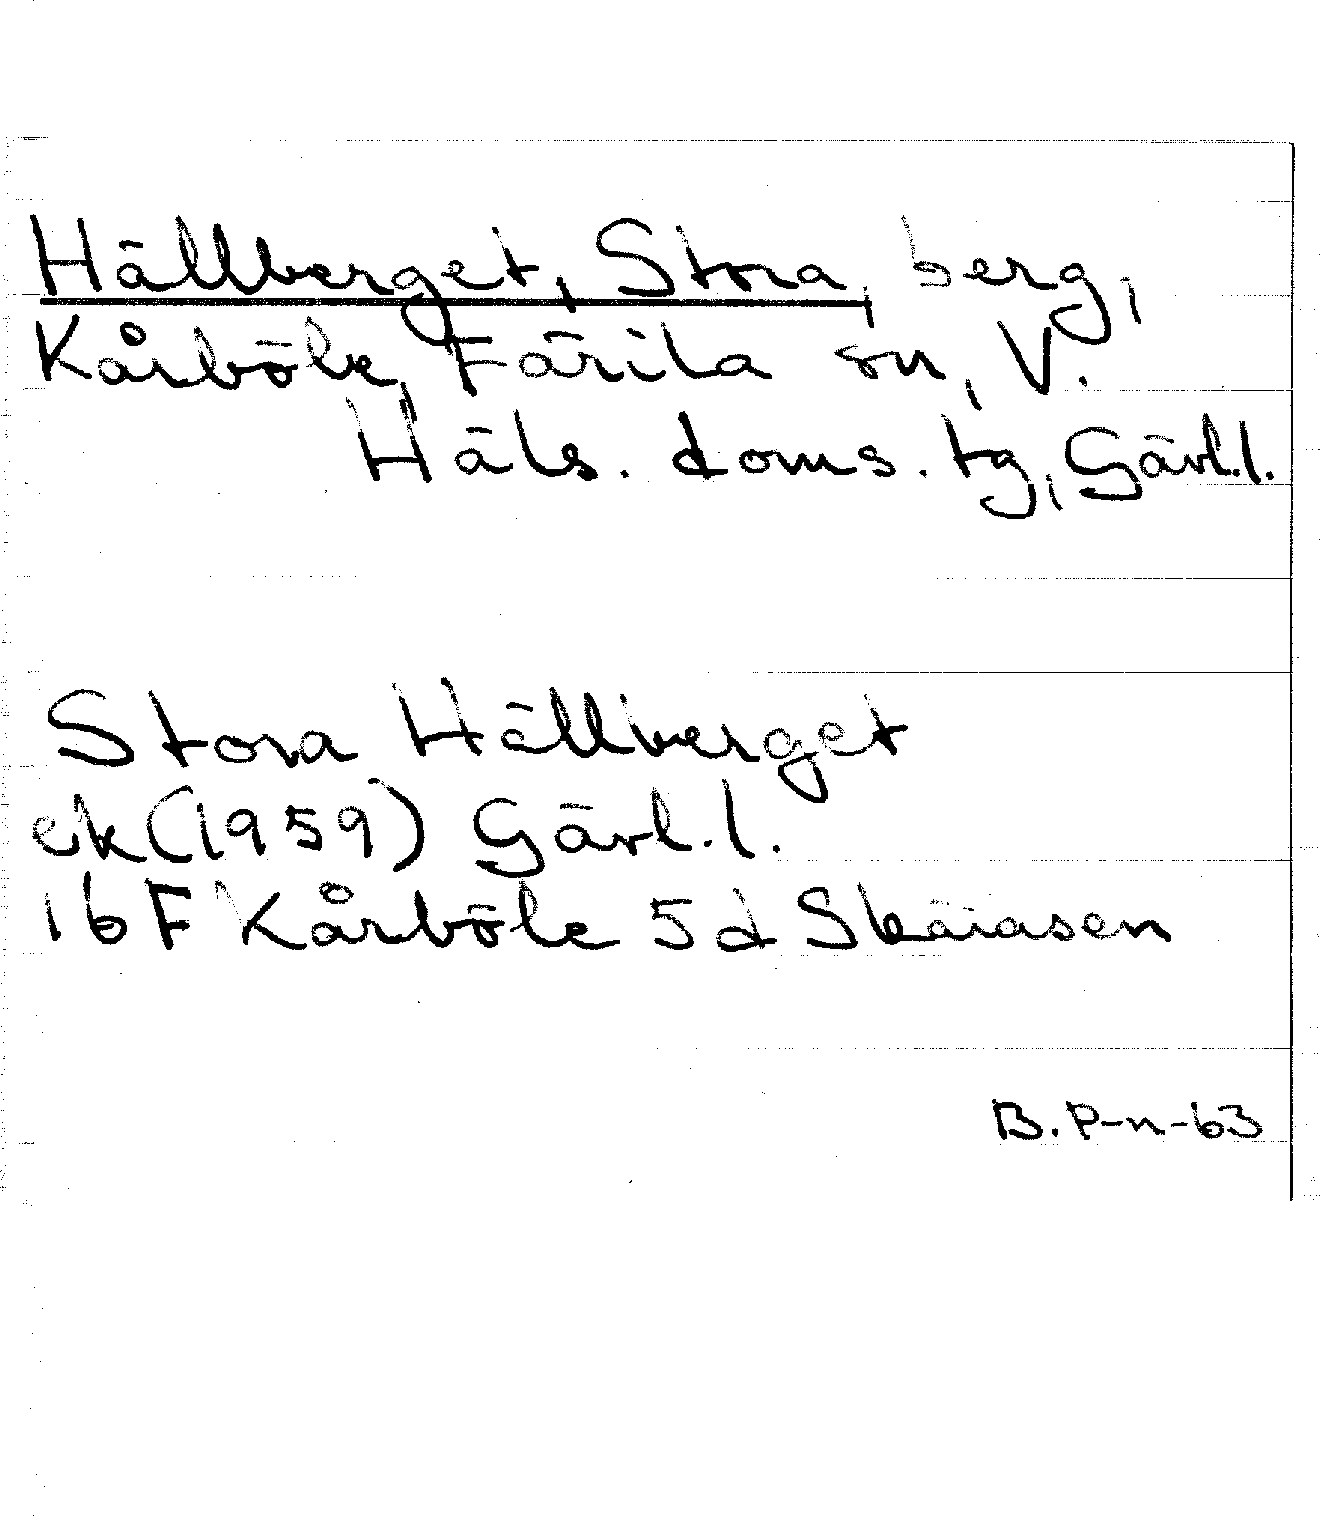 Hällberget, Stora, berg,
Kårböle, Färila sn, V.
Häls. doms. tg, Gävl.l.
Stora Hällberget
ek (1959) Gävl.l.
16F Kårböle 5d Skäiasen
B. P-n-63